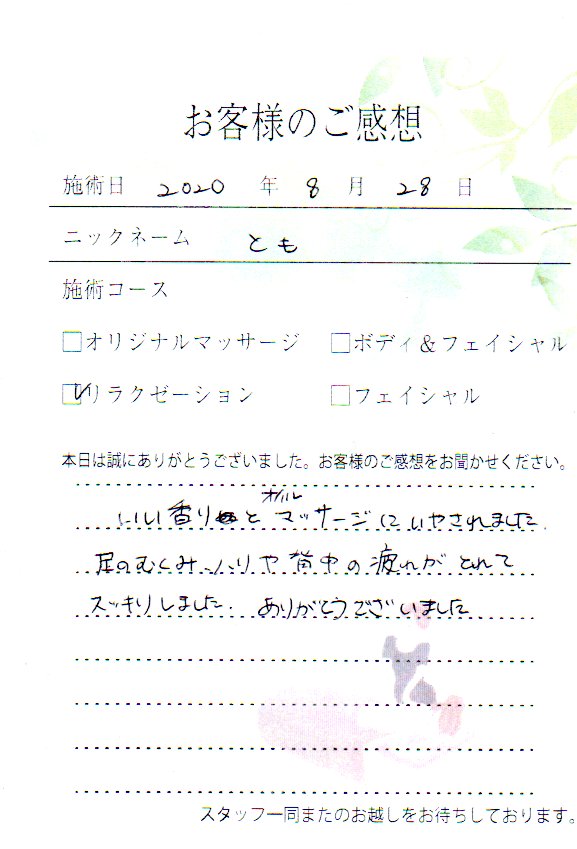 お客様のご感想
施術日 2020 年 8 月 28 日
ニックネーム とも
施術コース
オリジナルマッサージ ボディ＆フェイシャル
リラクゼーション フェイシャル
本日は誠にありがとうございました。お客様のご感想をお聞かせください。
オイル
いい香りと マッサージにいやされました
足のむくみ、ハリや背中の疲れがとれて
スッキリしました。ありがとうございました
スタッフ一同またのお越しをお待ちしております。